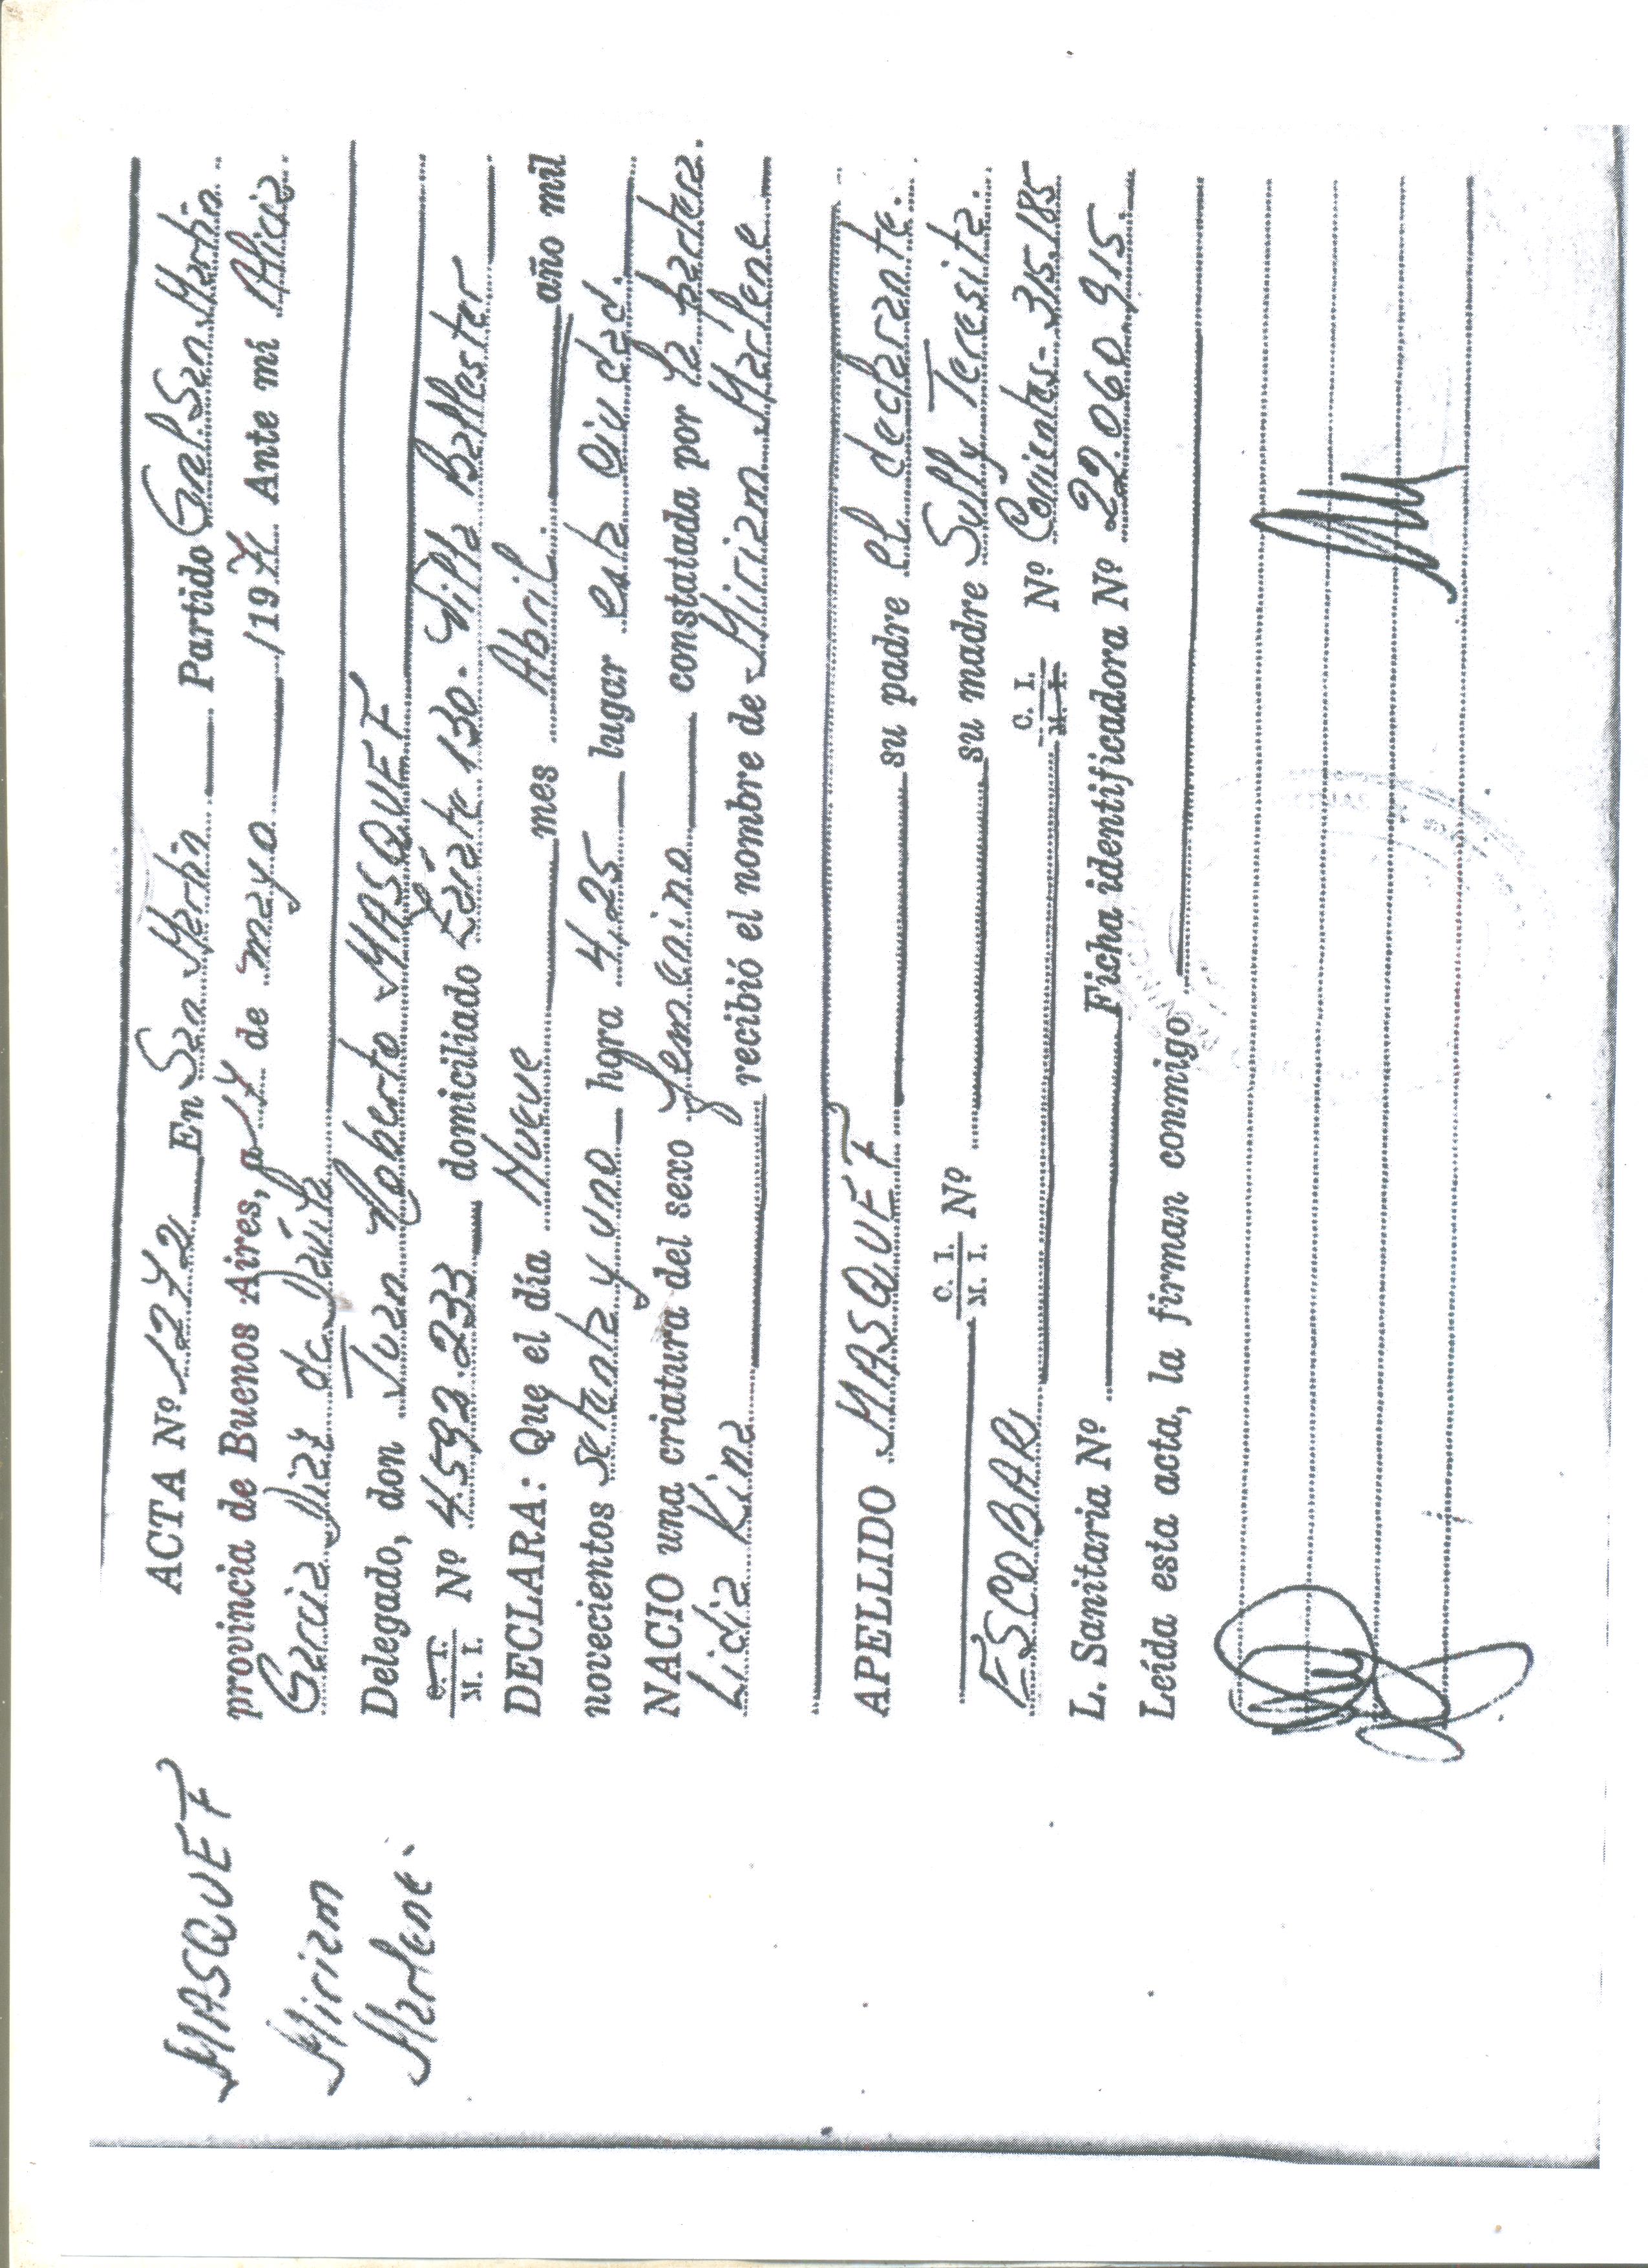 MASQUET
Miriam
Marlene.
ACTA Nº 1272 En San Martín Partido Gral. San Martín
provincia de Buenos Aires, a 17 de mayo 1971 Ante mí Alicia
García Díaz de Dávila
Delegado, don Juan Roberto MASQUET
C. I. M. I. Nº 4.592.233 domiciliado 130. Villa Ballester
DECLARA: Que el día Nueve mes Abril año mil
novecientos setenta y uno hora 4,25 lugar esta ciudad.
NACIO una criatura del sexo femenino constatada por la partera
Lidia Kina recibió el nombre de Miriam Marlene
APELLIDO MASQUET su padre el declarante.
C. I. M. I. Nº su madre Sully Teresita
ESCOBAR C. I. M. I. Nº Corrientes- 315.185
L. Sanitaria Nº Ficha identificadora Nº 22.060.915.
Leída esta acta, la firman conmigo